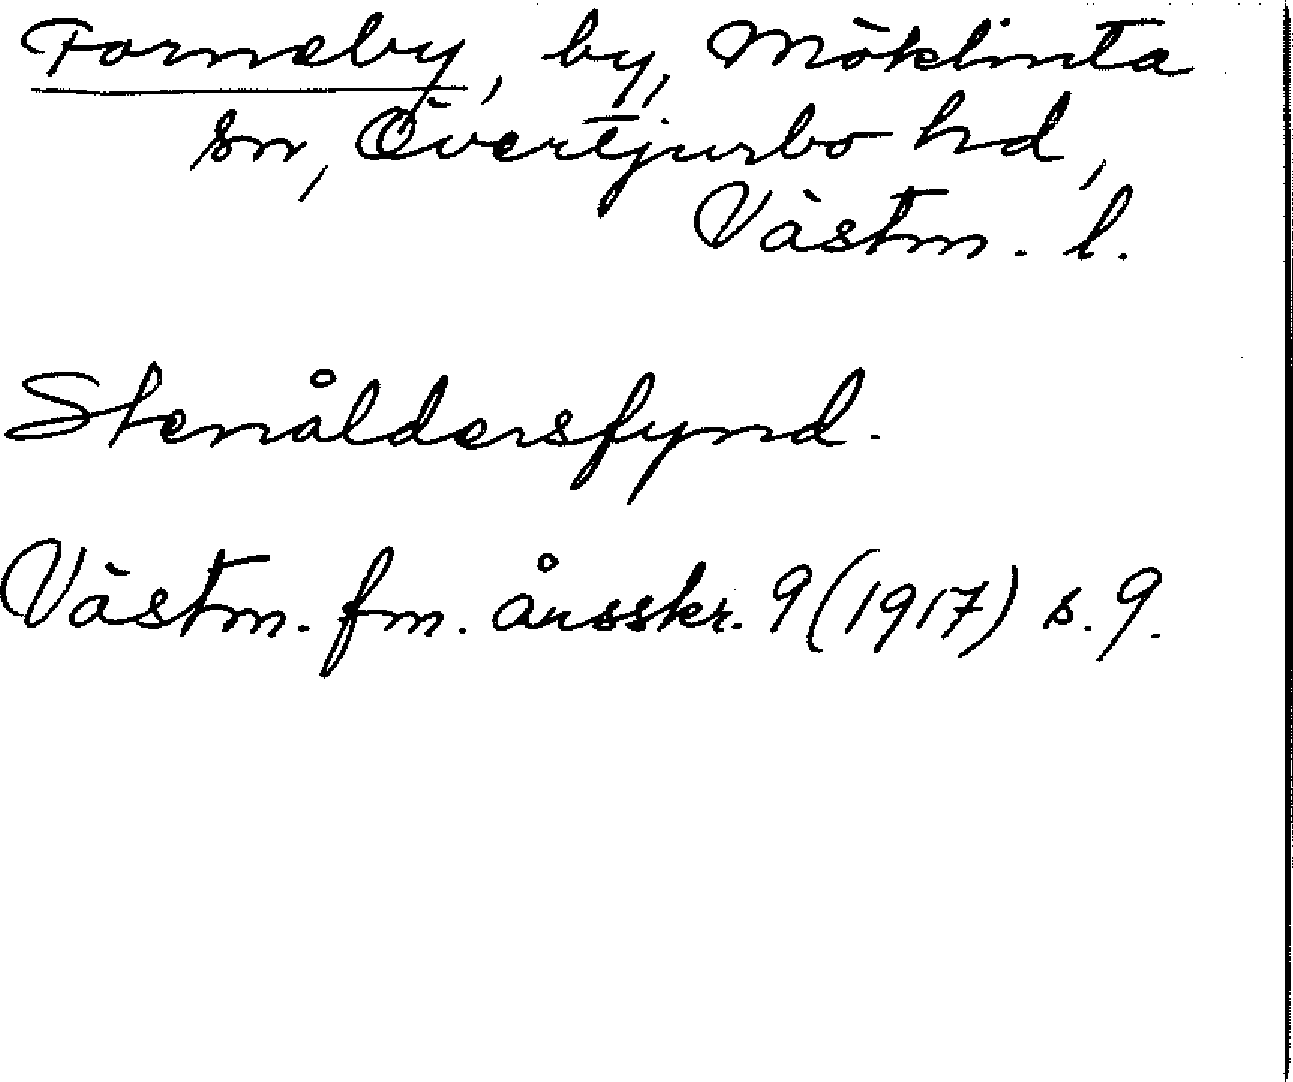 Forneby, by, Möklinta
sn, Övertjurbo hd,
Västm. l.
Stenåldersfynd.
Västm. fm. årsskr. 9 (1917) s. 9.